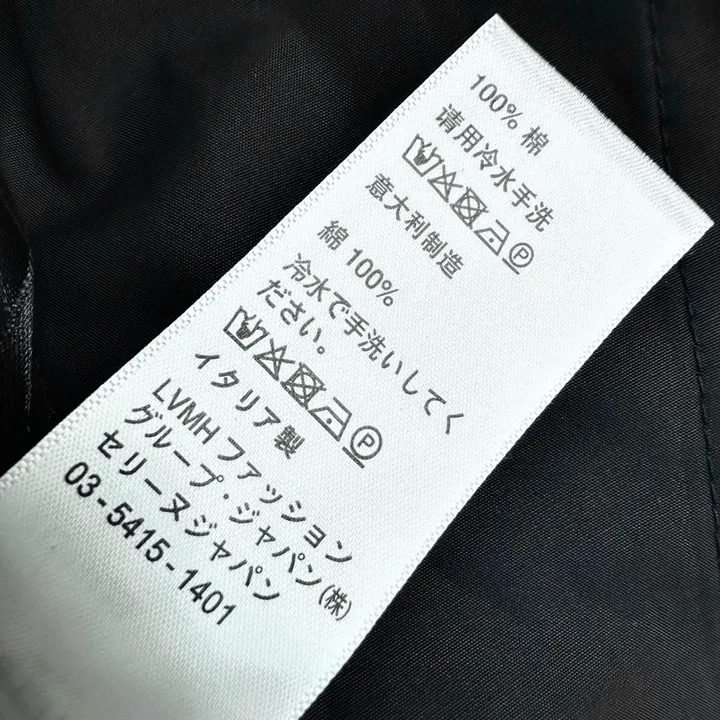 100% 棉
请用冷水手洗
意大利制造
綿 100%
冷水で手洗いしてく
ださい。
イタリア製
LVMH ファッション
グループ・ジャパン(株)
セリーヌジャパン
03-5415-1401